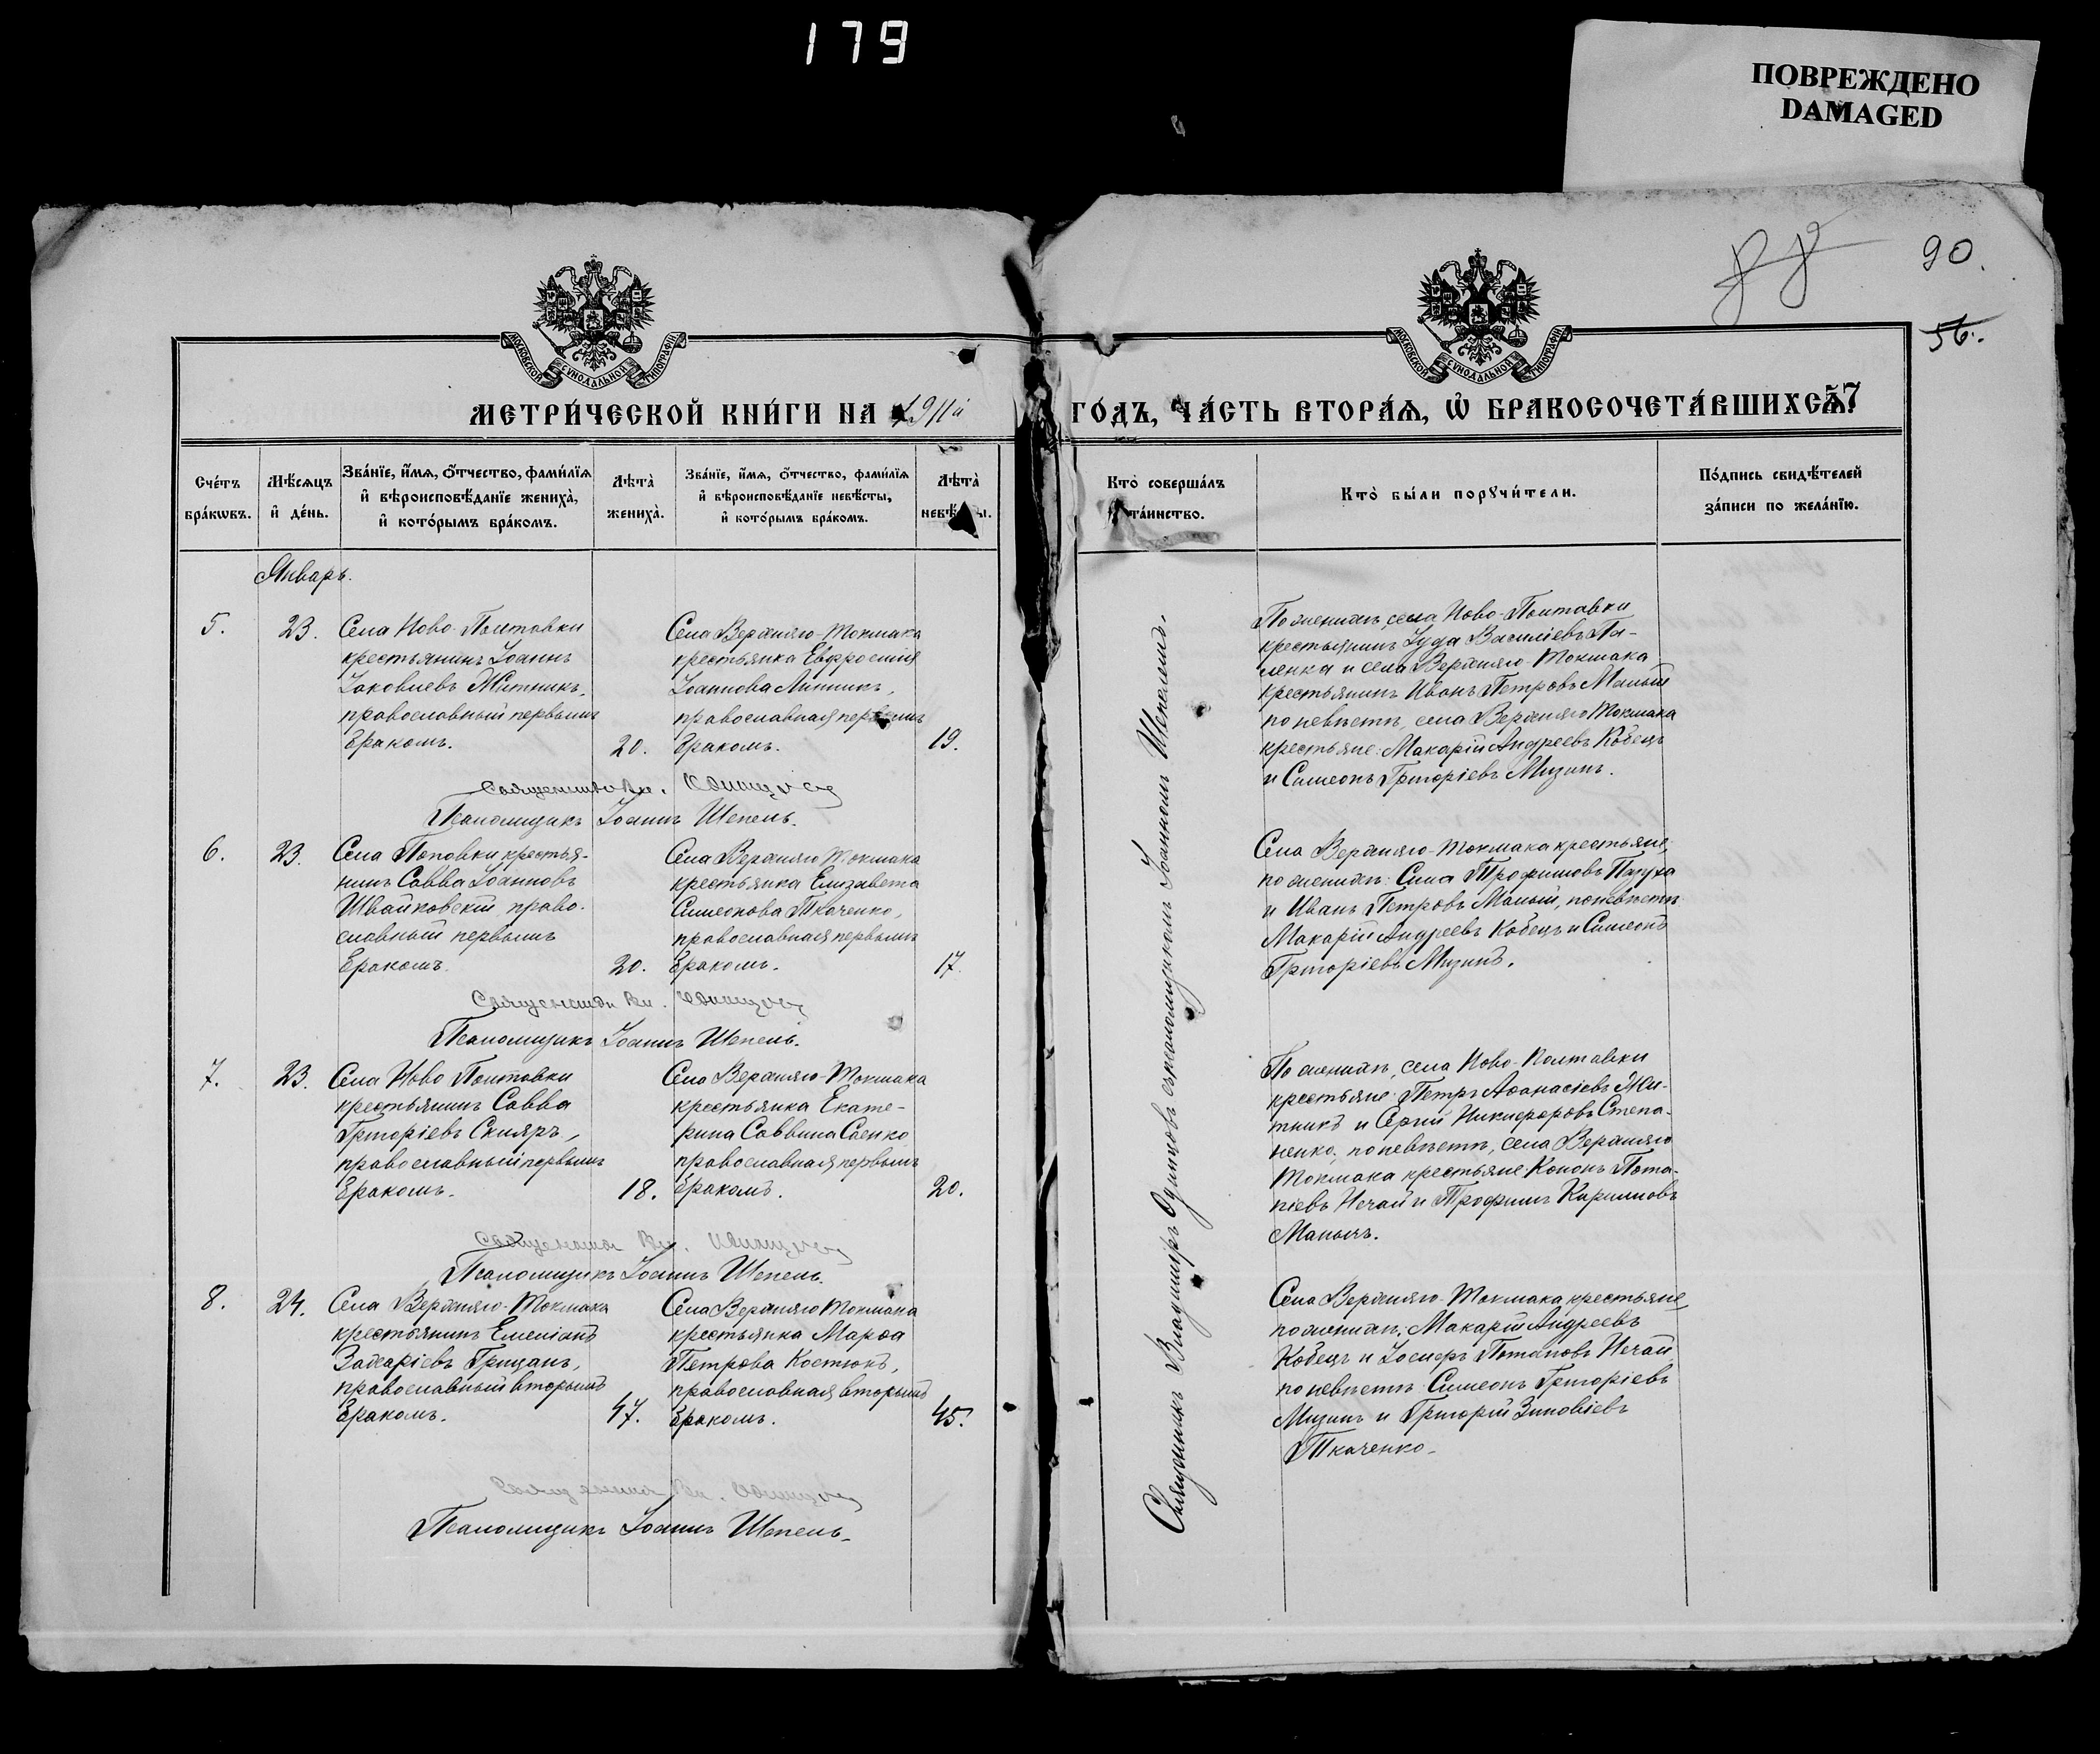 179
ПОВРЕЖДЕНО
DAMAGED
90.
56.
МОСКОВСКОЙ СѴНОДАЛЬНОЙ ТИПОГРАФІИ
МОСКОВСКОЙ СѴНОДАЛЬНОЙ ТИПОГРАФІИ
МЕТРИ́ЧЕСКОЙ КНИ́ГИ НА 1911й ГО́ДЪ, ЧА́СТЬ ВТОРА́Я, Ѡ҆ БРАКОСОЧЕТА́ВШИХСѦ 7
Сче́тъ бра́кѡвъ.
Мѣ́сяцъ и҆ де́нь.
Зва́нїе, и҆́мя, ѻ҆́тчество, фами́лїя и҆ вѣроисповѣ́данїе жениха̀, и҆ кото́рымъ бра́комъ.
Лѣта̀ жениха̀.
Зва́нїе, и҆́мя, ѻ҆́тчество, фами́лїя и҆ вѣроисповѣ́данїе невѣ́сты, и҆ кото́рымъ бра́комъ.
Лѣта̀
Кто̀ соверша́лъ та́инство.
Кто̀ бы́ли порꙋчи́тели.
По́дпись свидѣ́телей за́писи по жела́нїю.
Январь.
5.
23.
Села Ново-Полтавки
крестьянинъ Іоаннъ
Іаковлевъ Житникъ,
православный первымъ
бракомъ.
20.
Села Верхняго-Токмака
крестьянка Евфросинія
Іоаннова Линникъ,
православная первымъ
бракомъ.
19.
По женихѣ, села Ново-Полтавки
крестьянинъ Іуда Василіевъ Па-
ленка и села Верхняго-Токмака
крестьянинъ Иванъ Петровъ Малый
по невѣстѣ, села Верхняго Токмака
крестьяне: Макарій Андреевъ Кобецъ
и Симеонъ Григоріевъ Мизинъ.
Священникъ Вл. Одинцовъ
Псаломщикъ Іоаннъ Шепель.
6.
23.
Села Поповки крестья-
нинъ Савва Іоанновъ
Швайковскій, право-
славный первымъ
бракомъ.
20.
Села Верхняго Токмака
крестьянка Елизавета
Симеонова Ткаченко,
православная первымъ
бракомъ.
17.
Села Верхняго-Токмака крестьяне,
по женихѣ: Сила Трофимовъ Пазуха
и Иванъ Петровъ Малый, по невѣстѣ
Макарій Андреевъ Кобецъ и Симеонъ
Григоріевъ Мизинъ.
Священникъ Вл. Одинцовъ
Псаломщикъ Іоаннъ Шепель.
7.
23.
Села Ново Полтавки
крестьянинъ Савва
Григоріевъ Скляръ,
православный первымъ
бракомъ.
18.
Села Верхняго-Токмака
крестьянка Екате-
рина Саввина Саенко
православная первымъ
бракомъ.
20.
По женихѣ, села Ново-Полтавки
крестьяне: Петръ Аѳанасіевъ Жи-
тникъ и Сергій Никифоровъ Степа-
ненко, по невѣстѣ, села Верхняго
Токмака крестьяне: Кононъ Пота-
піевъ Нечай и Трофимъ Кирилловъ
Священникъ Вл. Одинцовъ
Псаломщикъ Іоаннъ Шепель.
8.
24.
Села Верхняго-Токмака
крестьянинъ Емеліанъ
Захаріевъ Грицанъ,
православный вторымъ
бракомъ.
47.
Села Верхняго Токмака
крестьянка Марѳа
Петрова Костюкъ,
православная вторымъ
бракомъ.
45.
Села Верхняго-Токмака крестьяне,
по женихѣ: Макарій Андреевъ
Кобецъ и Іосифъ Потаповъ Нечай
по невѣстѣ: Симеонъ Григоріевъ
Мизинъ и Григорій Зиновіевъ
Ткаченко.
Священникъ Вл. Одинцовъ
Псаломщикъ Іоаннъ Шепель.
Священникъ Владиміръ Одинцовъ съ псаломщикомъ Іоанномъ Шепелемъ.